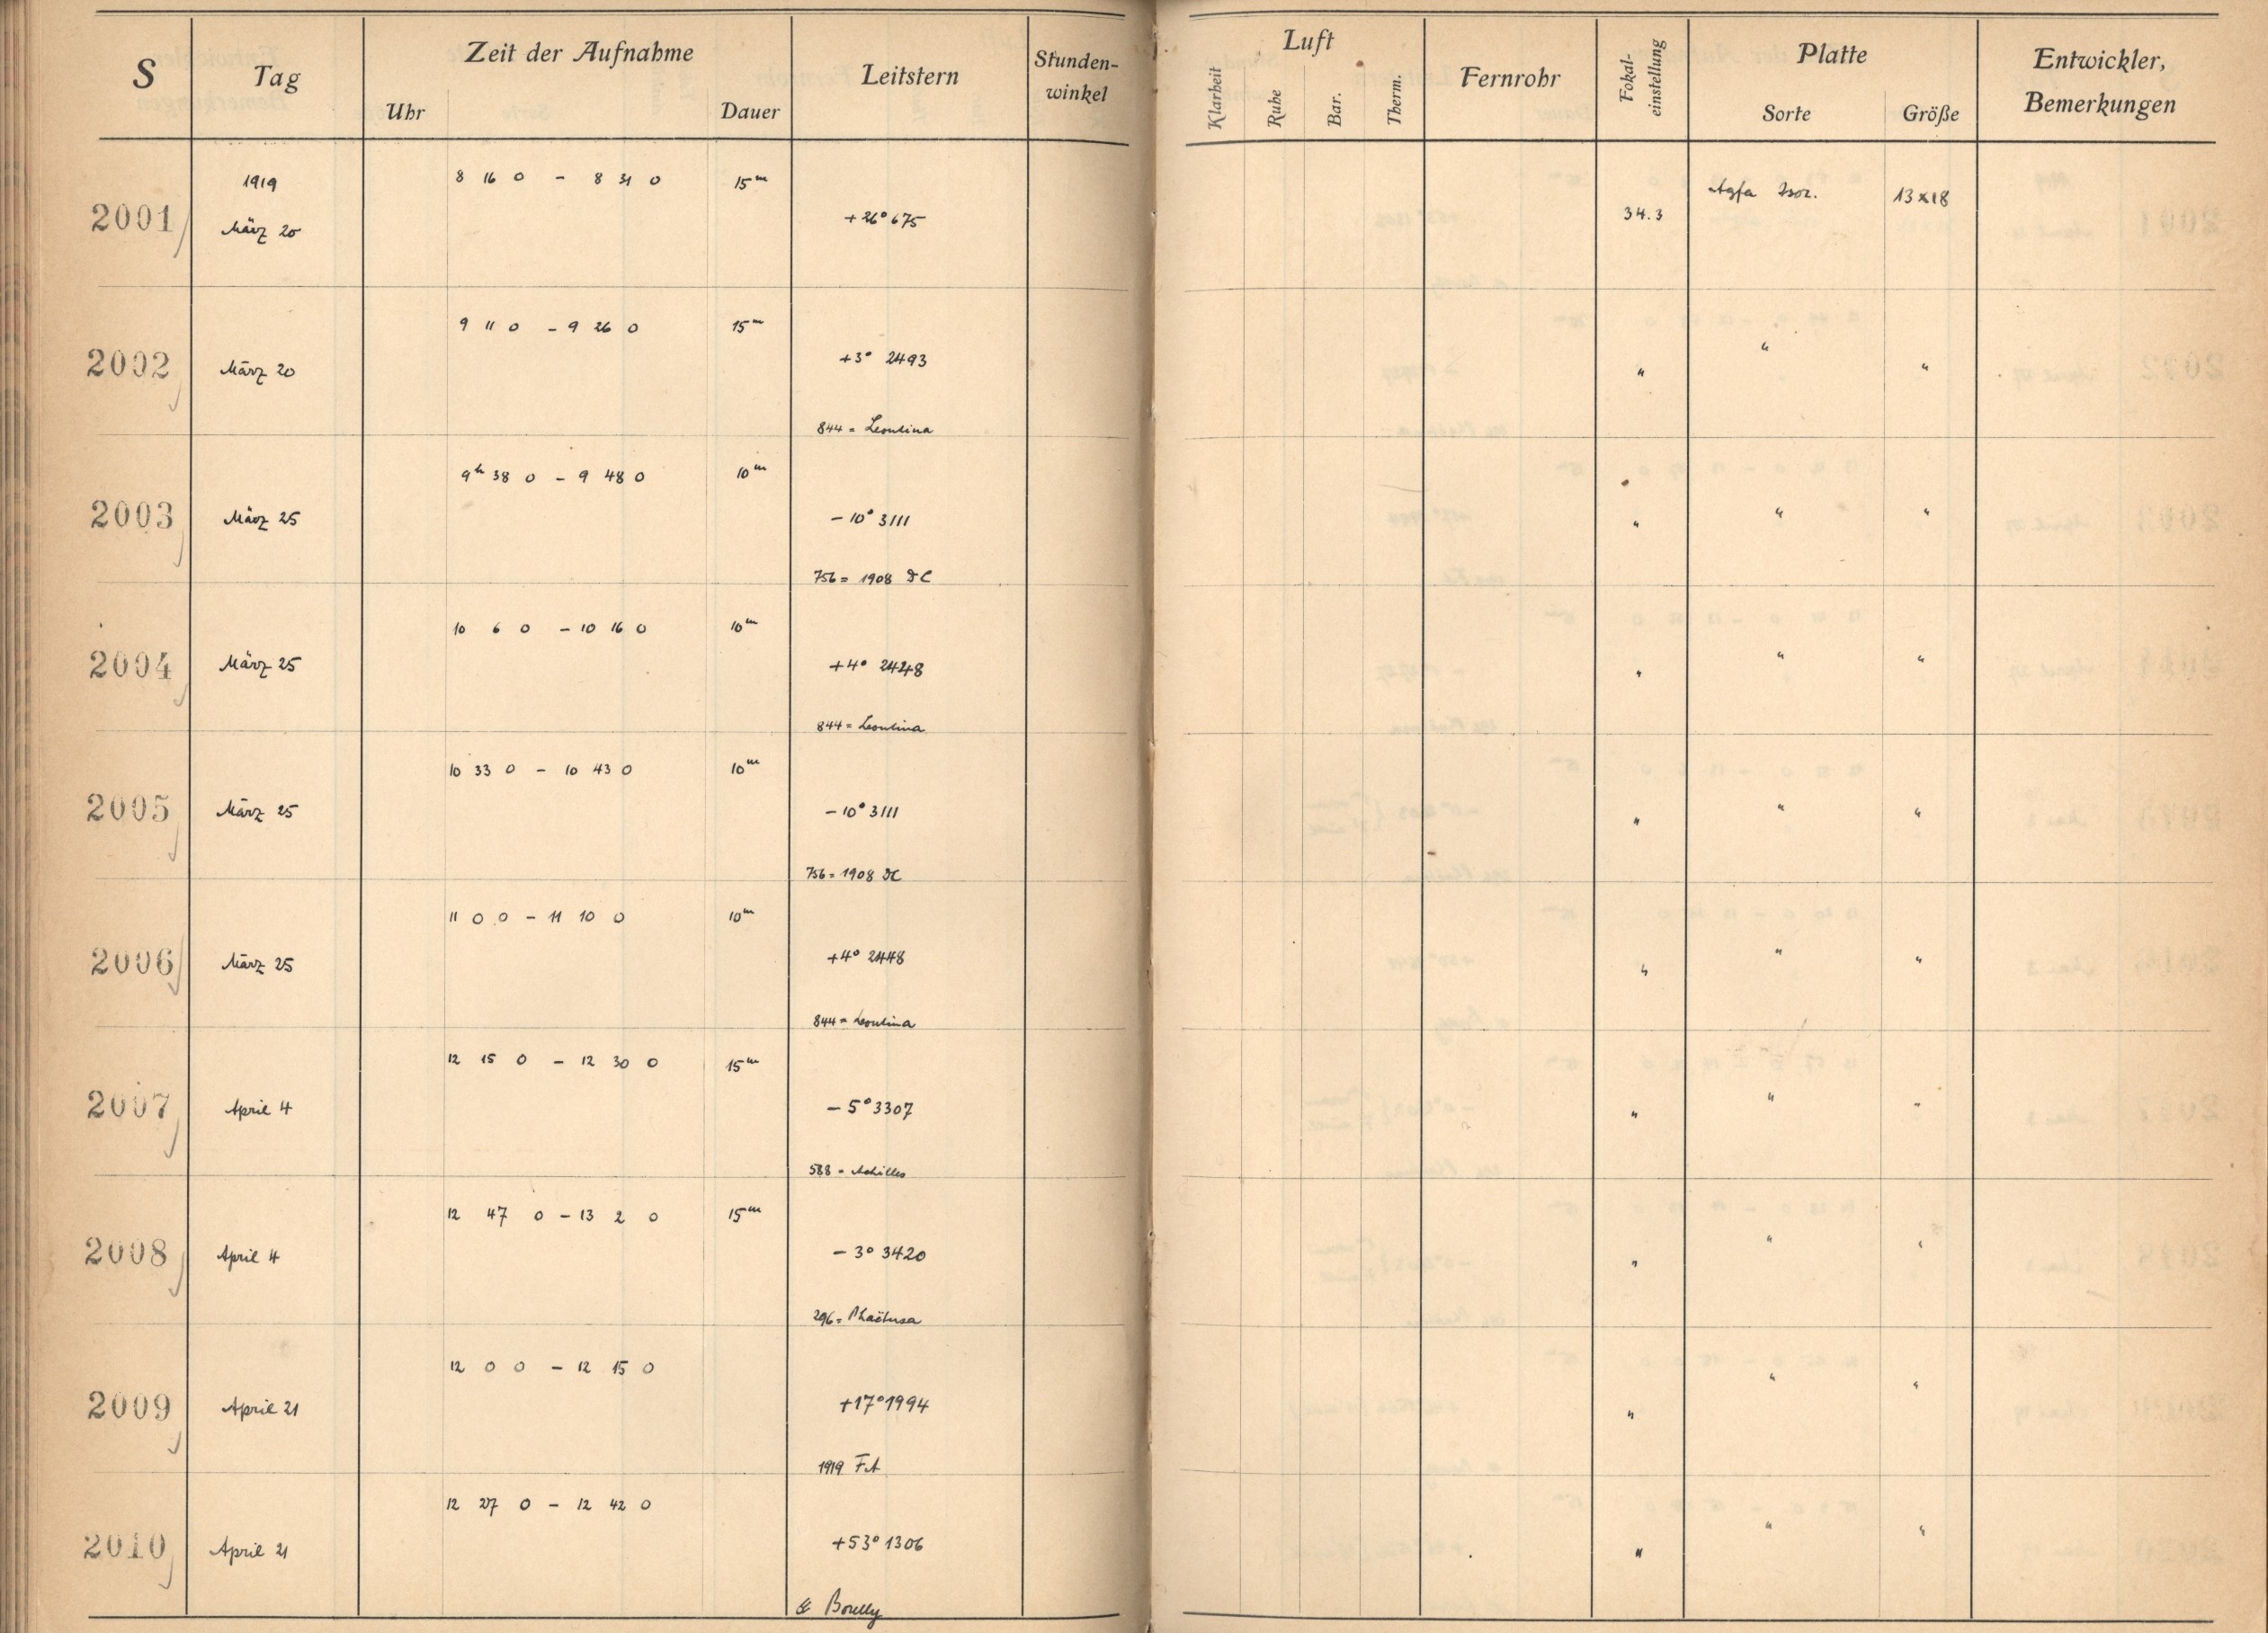 S Tag Zeit der Aufnahme Leitstern Stunden-winkel Luft Fernrohr Fokal-einstellung Platte Entwickler, Bemerkungen
Uhr Dauer Klarheit Ruhe Bar. Therm. Sorte Größe
1919 8 16 0 - 8 31 0 15m
2001 März 20 +26° 675 34.3 Agfa Isor. 13x18
9 11 0 - 9 26 0 15m
2002 März 20 +3° 2493 " " "
844 = Leontina
9h 38 0 - 9 48 0 10m
2003 März 25 - 10° 3111 " " "
756 = 1908 DC
10 6 0 - 10 16 0 10m
2004 März 25 +4° 2448 " " "
844 = Leontina
10 33 0 - 10 43 0 10m
2005 März 25 - 10° 3111 " " "
756 = 1908 DC
11 0 0 - 11 10 0 10m
2006 März 25 +4° 2448 " " "
844 = Leontina
12 15 0 - 12 30 0 15m
2007 April 4 - 5° 3307 " " "
588 = Achilles
12 47 0 - 13 2 0 15m
2008 April 4 - 3° 3420 " " "
296 = Phaëtusa
12 0 0 - 12 15 0
2009 April 21 +17° 1994 " " "
1919 FA
12 27 0 - 12 42 0
2010 April 21 +53° 1306 " " "
Borelly